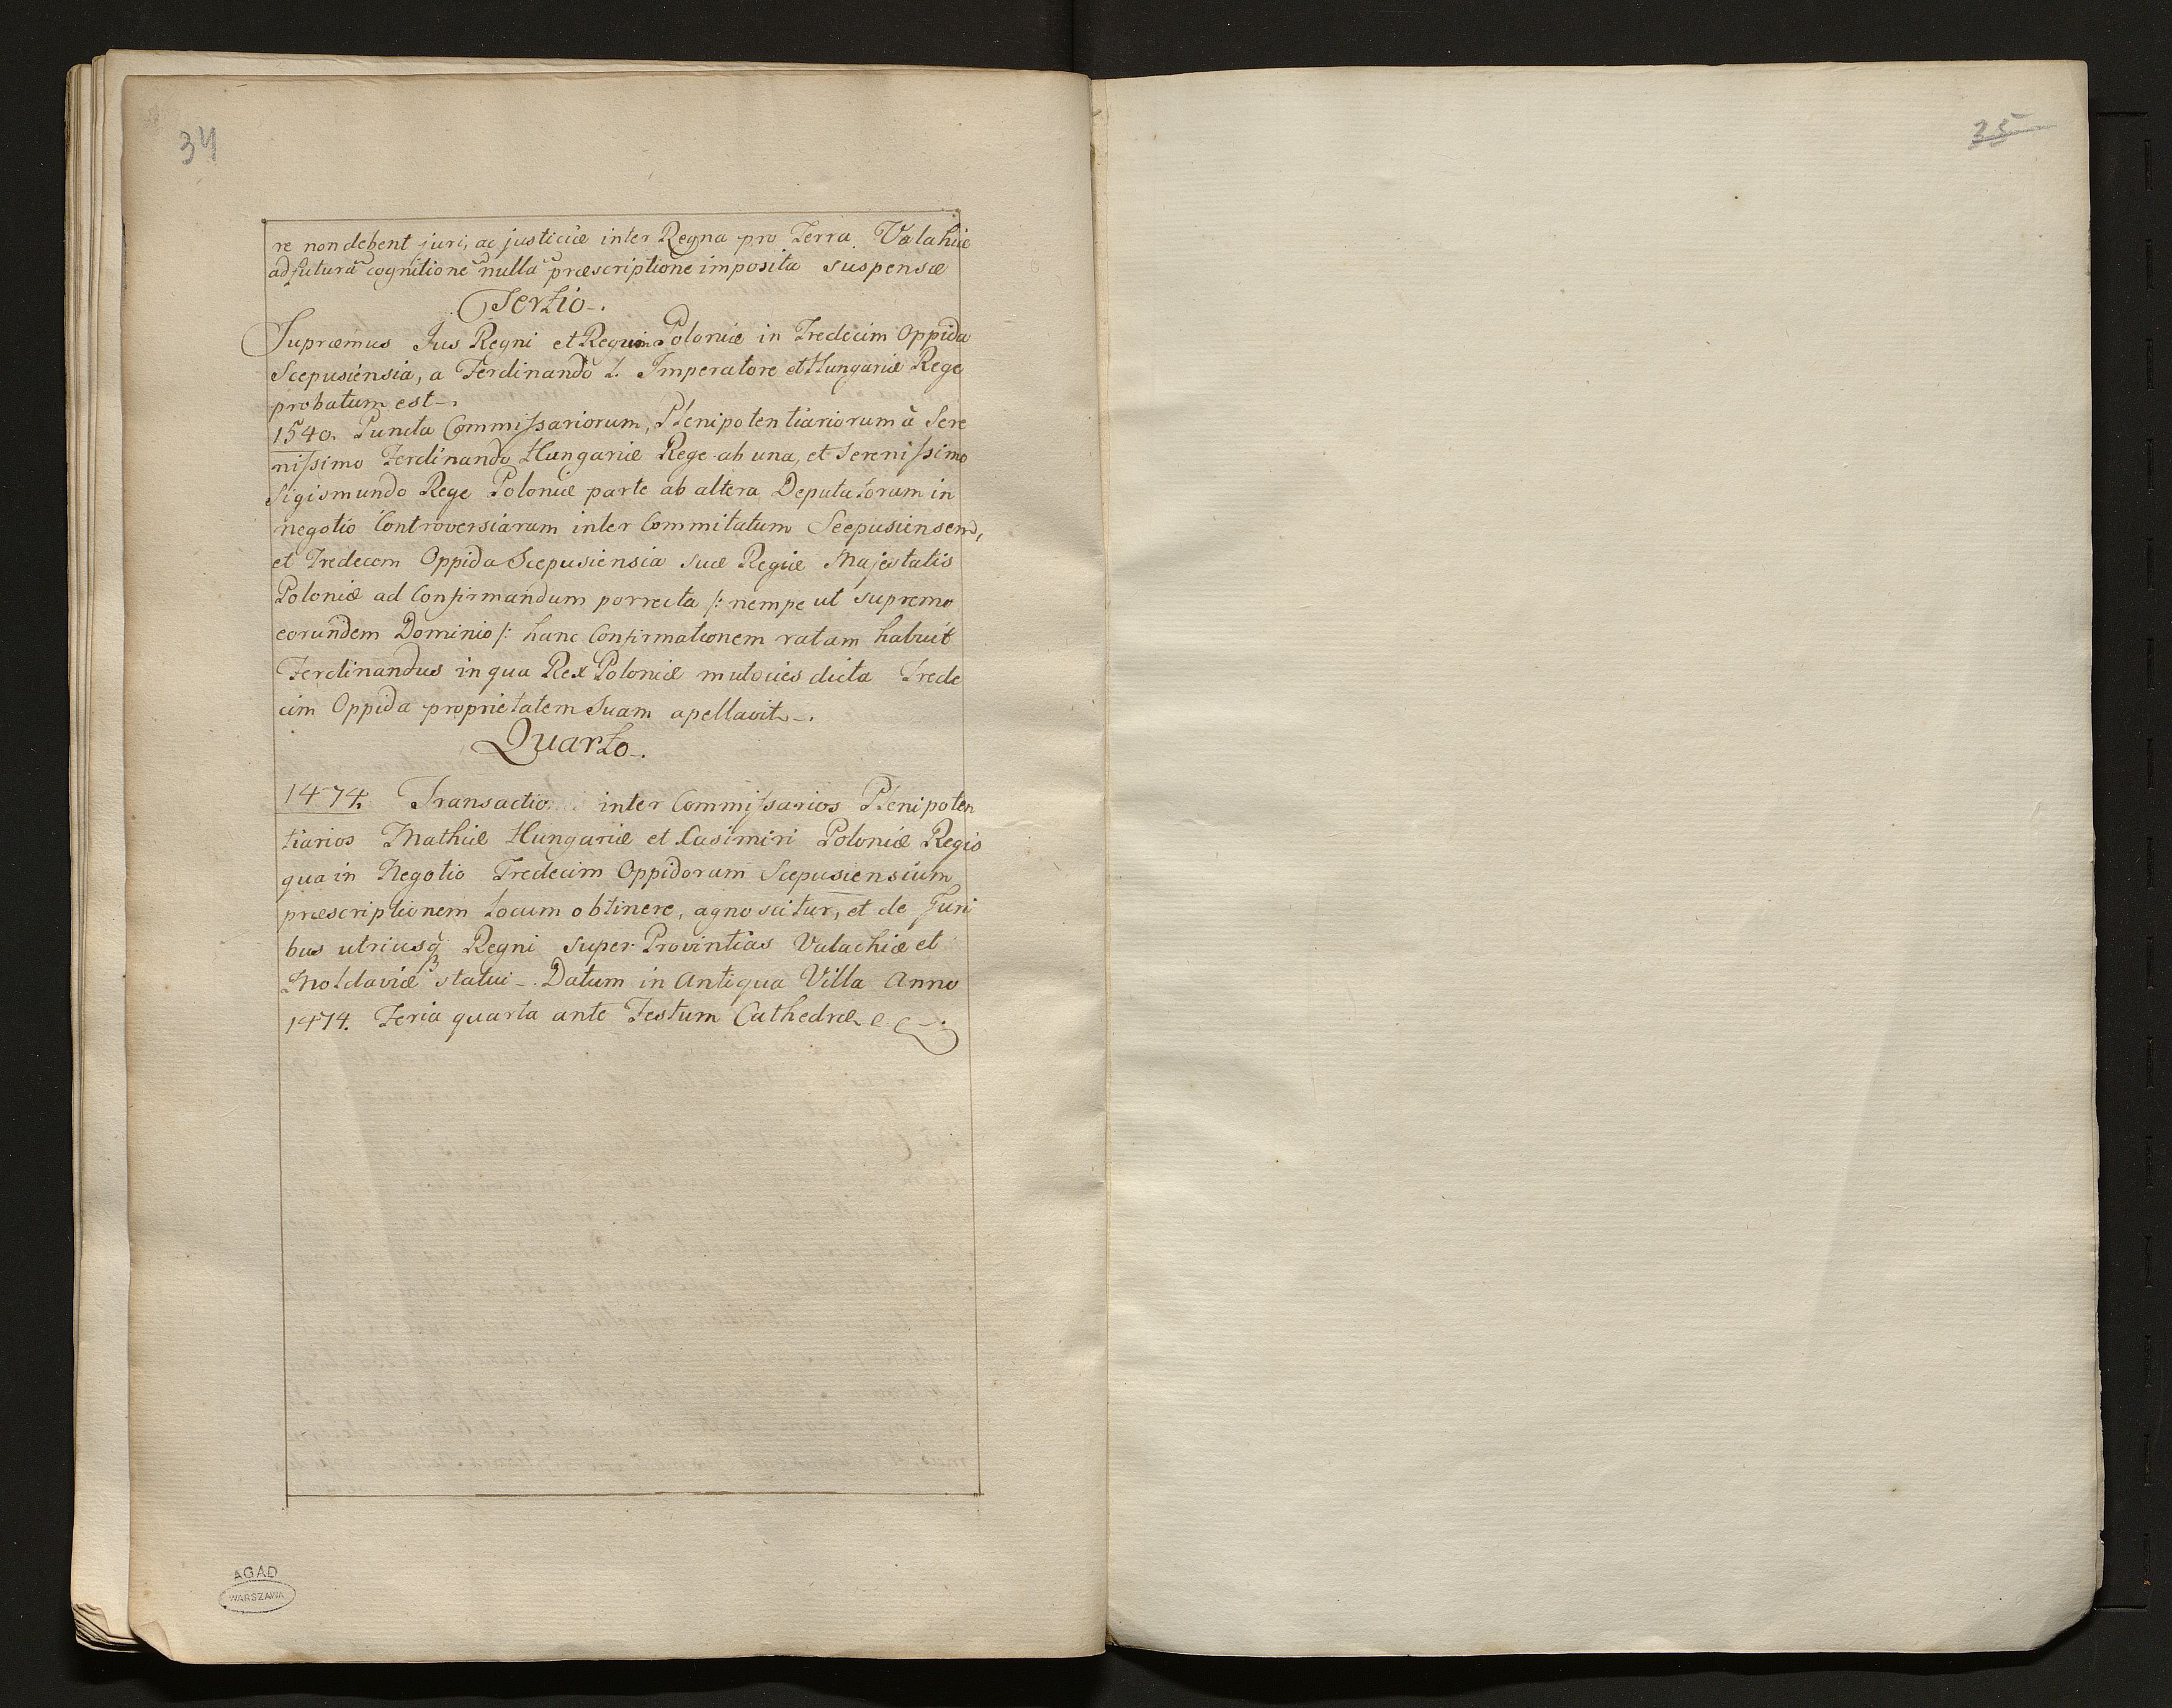 34
re non debent juri, ac justiciæ inter Regna pro Terra Valahiæ
ad futurā cognitionē nullā præscriptione imposita suspensæ
Tertio.
Supræmus Jus Regni et Regum Poloniæ in Tredecim Oppida
Scepusiensia, a Ferdinando I. Imperatore et Hungariæ Rege
probatum est.
1540. Puncta Commissariorum, Plenipotentiariorum à Sere
nissimo Ferdinando Hungariæ Rege ab una, et Serenissimo
Sigismundo Rege Poloniæ parte ab altera Deputatorum in
negotio Controversiarum inter Commitatum Scepusiensem,
et Tredecem Oppida Scepusiensia suæ Regiæ Majestatis
Poloniæ ad Confirmandum porrecta /: nempe ut supremo
eorundem Dominio /: hanc Confirmationem ratam habuit
Ferdinandus in qua Rex Poloniæ mutocies dicta Trede
cim Oppida proprietatem Suam apellavit.
Quarto.
1474. Transactio inter Commissarios Plenipoten
tiarios Mathiæ Hungariæ et Casimiri Poloniæ Regis
qua in Negotio Tredecim Oppidorum Scepusiensium
præscriptionem locum obtinere, agnoscitur, et de Juri
bus utriusq3 Regni super Provintias Valachiæ et
Moldaviæ statui. Datum in Antiqua Villa Anno
1474. Feria quarta ante Festum Cathedræ
AGAD
WARSZAWA
35